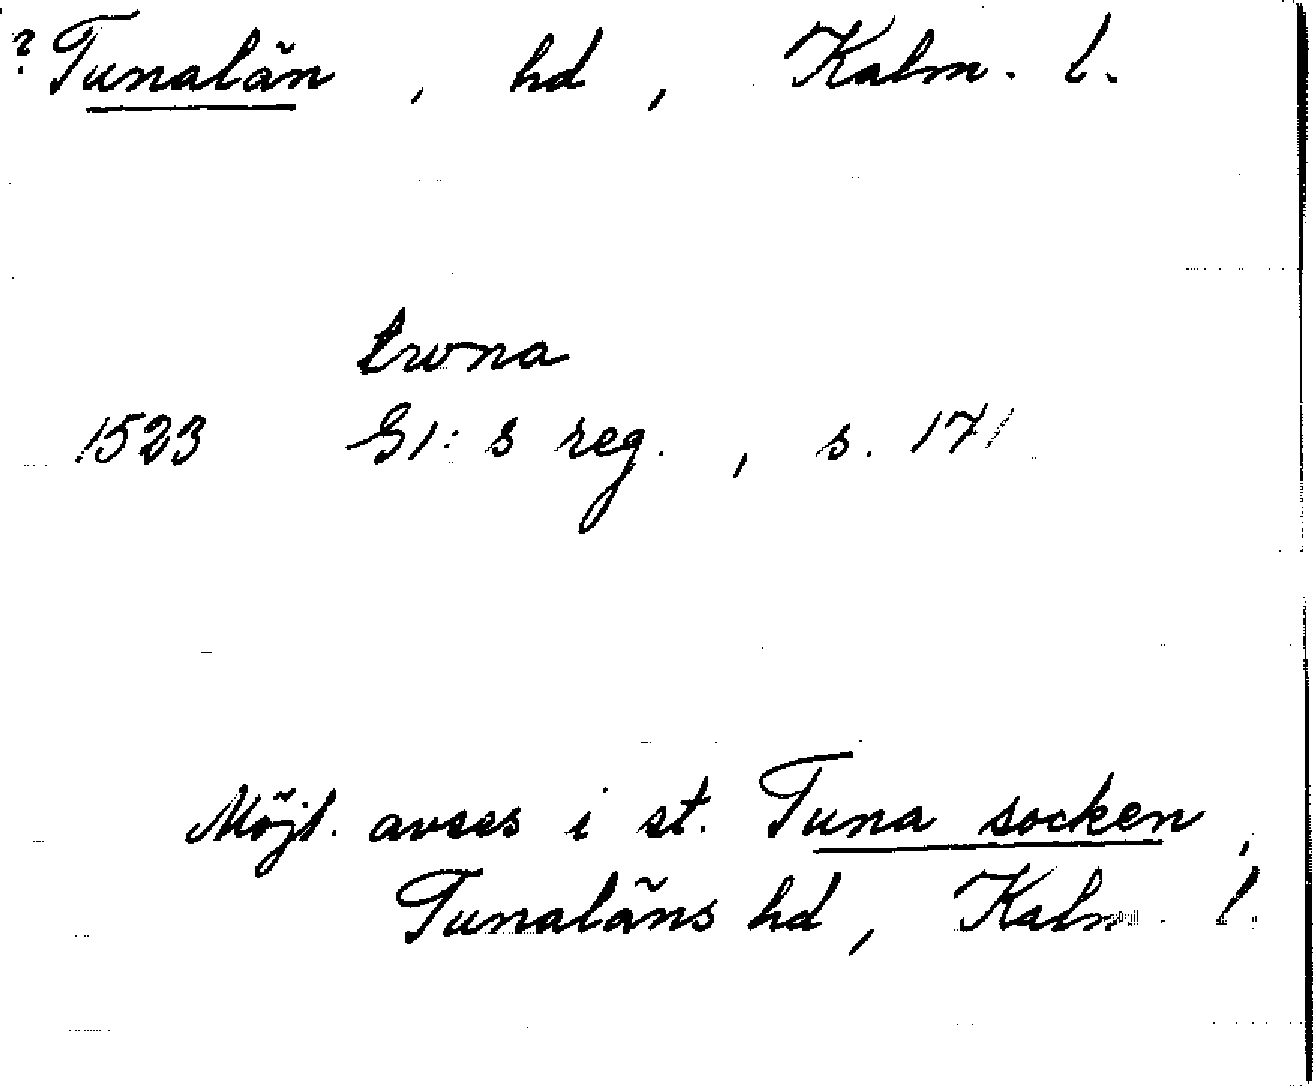 ? Tunalän, hd, Kalm. l.
twna
1523 G1:s reg., s. 171
Möjl. avses i st. Tuna socken,
Tunaläns hd, Kalm. l.